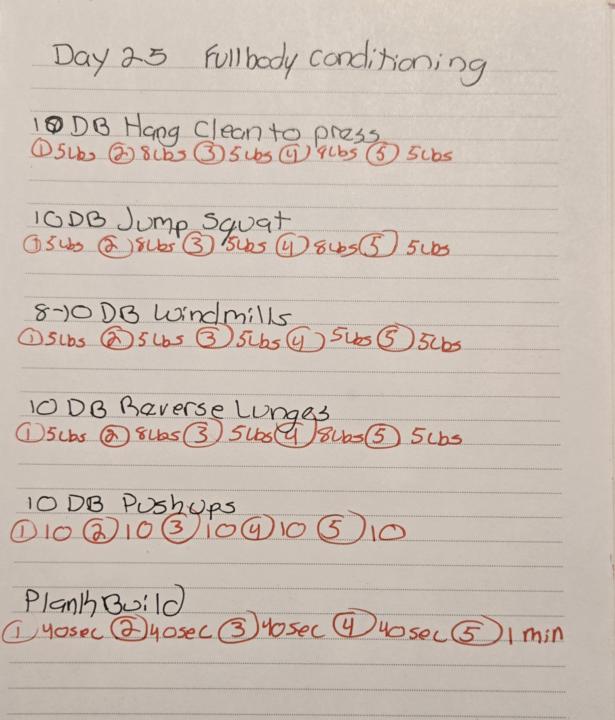 Day 25 Fullbody conditioning
10 DB Hang Clean to press
① 5Lbs ② 8Lbs ③ 5Lbs ④ 9Lbs ⑤ 5Lbs
10 DB Jump Squat
① 5Lbs ② 8Lbs ③ 5Lbs ④ 8Lbs ⑤ 5Lbs
8-10 DB Windmills
① 5Lbs ② 5Lbs ③ 5Lbs ④ 5Lbs ⑤ 5Lbs
10 DB Raverse Lunges
① 5Lbs ② 8Lbs ③ 5Lbs ④ 8Lbs ⑤ 5Lbs
10 DB Pushups
① 10 ② 10 ③ 10 ④ 10 ⑤ 10
Plank Build
① 40sec ② 40sec ③ 40sec ④ 40sec ⑤ 1 min